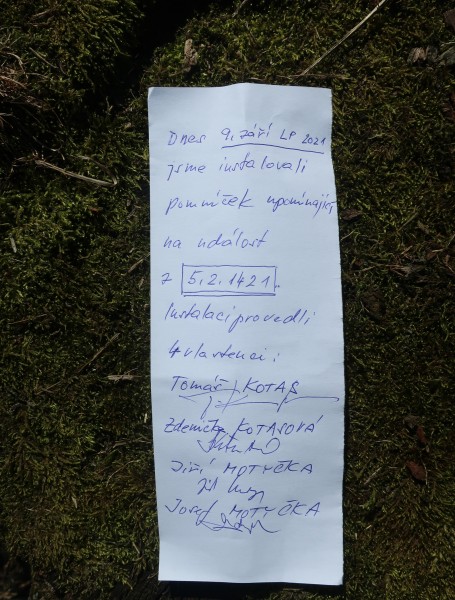 Dnes 9. září LP 2021
jsme instalovali
pomníček upomínající
na událost
z 5.2.1421.
Instalaci provedli
4 vlastenci:
Tomáš KOTAS
Zdenička KOTASOVÁ
Jiří MOTYČKA
Josef MOTYČKA